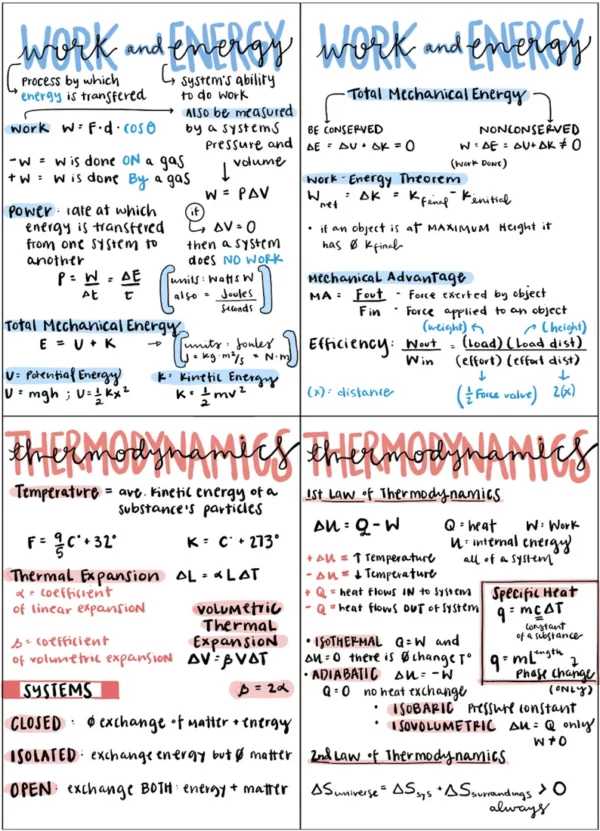 WORK and ENERGY
process by which
energy is transfered
system's ability
to do work
Also be measured
by a systems
pressure and
volume
W = PΔV
if
ΔV = 0
then a system
does NO WORK
Work W = F·d·cosθ
-W = W is done ON a gas
+W = W is done By a gas
Power: rate at which
energy is transfered
from one system to
another
P = W/Δt = ΔE/t
units: Watts W
also = Joules/seconds
Total Mechanical Energy
E = U + K →
units: Joules
J = kg·m²/s² = N·m
U = Potential Energy
U = mgh ; U = 1/2 kx²
K = Kinetic Energy
K = 1/2 mv²
WORK and ENERGY
Total Mechanical Energy
BE CONSERVED
ΔE = ΔU + ΔK = 0
NONCONSERVED
W = ΔE = ΔU + ΔK ≠ 0
(Work Done)
Work-Energy Theorem
Wnet = ΔK = Kfinal - Kinitial
• if an object is at MAXIMUM Height it
has Ø Kfinal
Mechanical Advantage
MA = Fout - Force exerted by object
Fin - Force applied to an object
(weight) (height)
Efficiency: Wout/Win = (Load)(Load dist)/(effort)(effort dist)
(x) = distance
(1/2 Force value) 2(x)
THERMODYNAMICS
thermodynamics
Temperature = ave. kinetic energy of a
substance's particles
F = 9/5 C° + 32° K = C° + 273°
Thermal Expansion ΔL = αLΔT
α = coefficient
of linear expansion
β = coefficient
of volumetric expansion
Volumetric
Thermal
Expansion
ΔV = βVΔT
SYSTEMS
β = 2α
CLOSED: Ø exchange of matter + energy
ISOLATED: exchange energy but Ø matter
OPEN: exchange BOTH: energy + matter
THERMODYNAMICS
thermodynamics
1st Law of Thermodynamics
ΔU = Q - W
Q = heat W = Work
U = internal energy
all of a system
+ ΔU = ↑ Temperature
- ΔU = ↓ Temperature
+ Q = heat flows IN to system
- Q = heat flows OUT of system
Specific Heat
q = mcΔT
constant
of a substance
q = mL
Phase change
(ONLY)
• ISOTHERMAL Q = W and
ΔU = 0 there is Ø change T°
• ADIABATIC ΔU = -W
Q = 0 no heat exchange
• ISOBARIC Pressure constant
• ISOVOLUMETRIC ΔU = Q only
W ≠ 0
2nd Law of Thermodynamics
ΔSuniverse = ΔSsys + ΔSsurrandings > 0
always